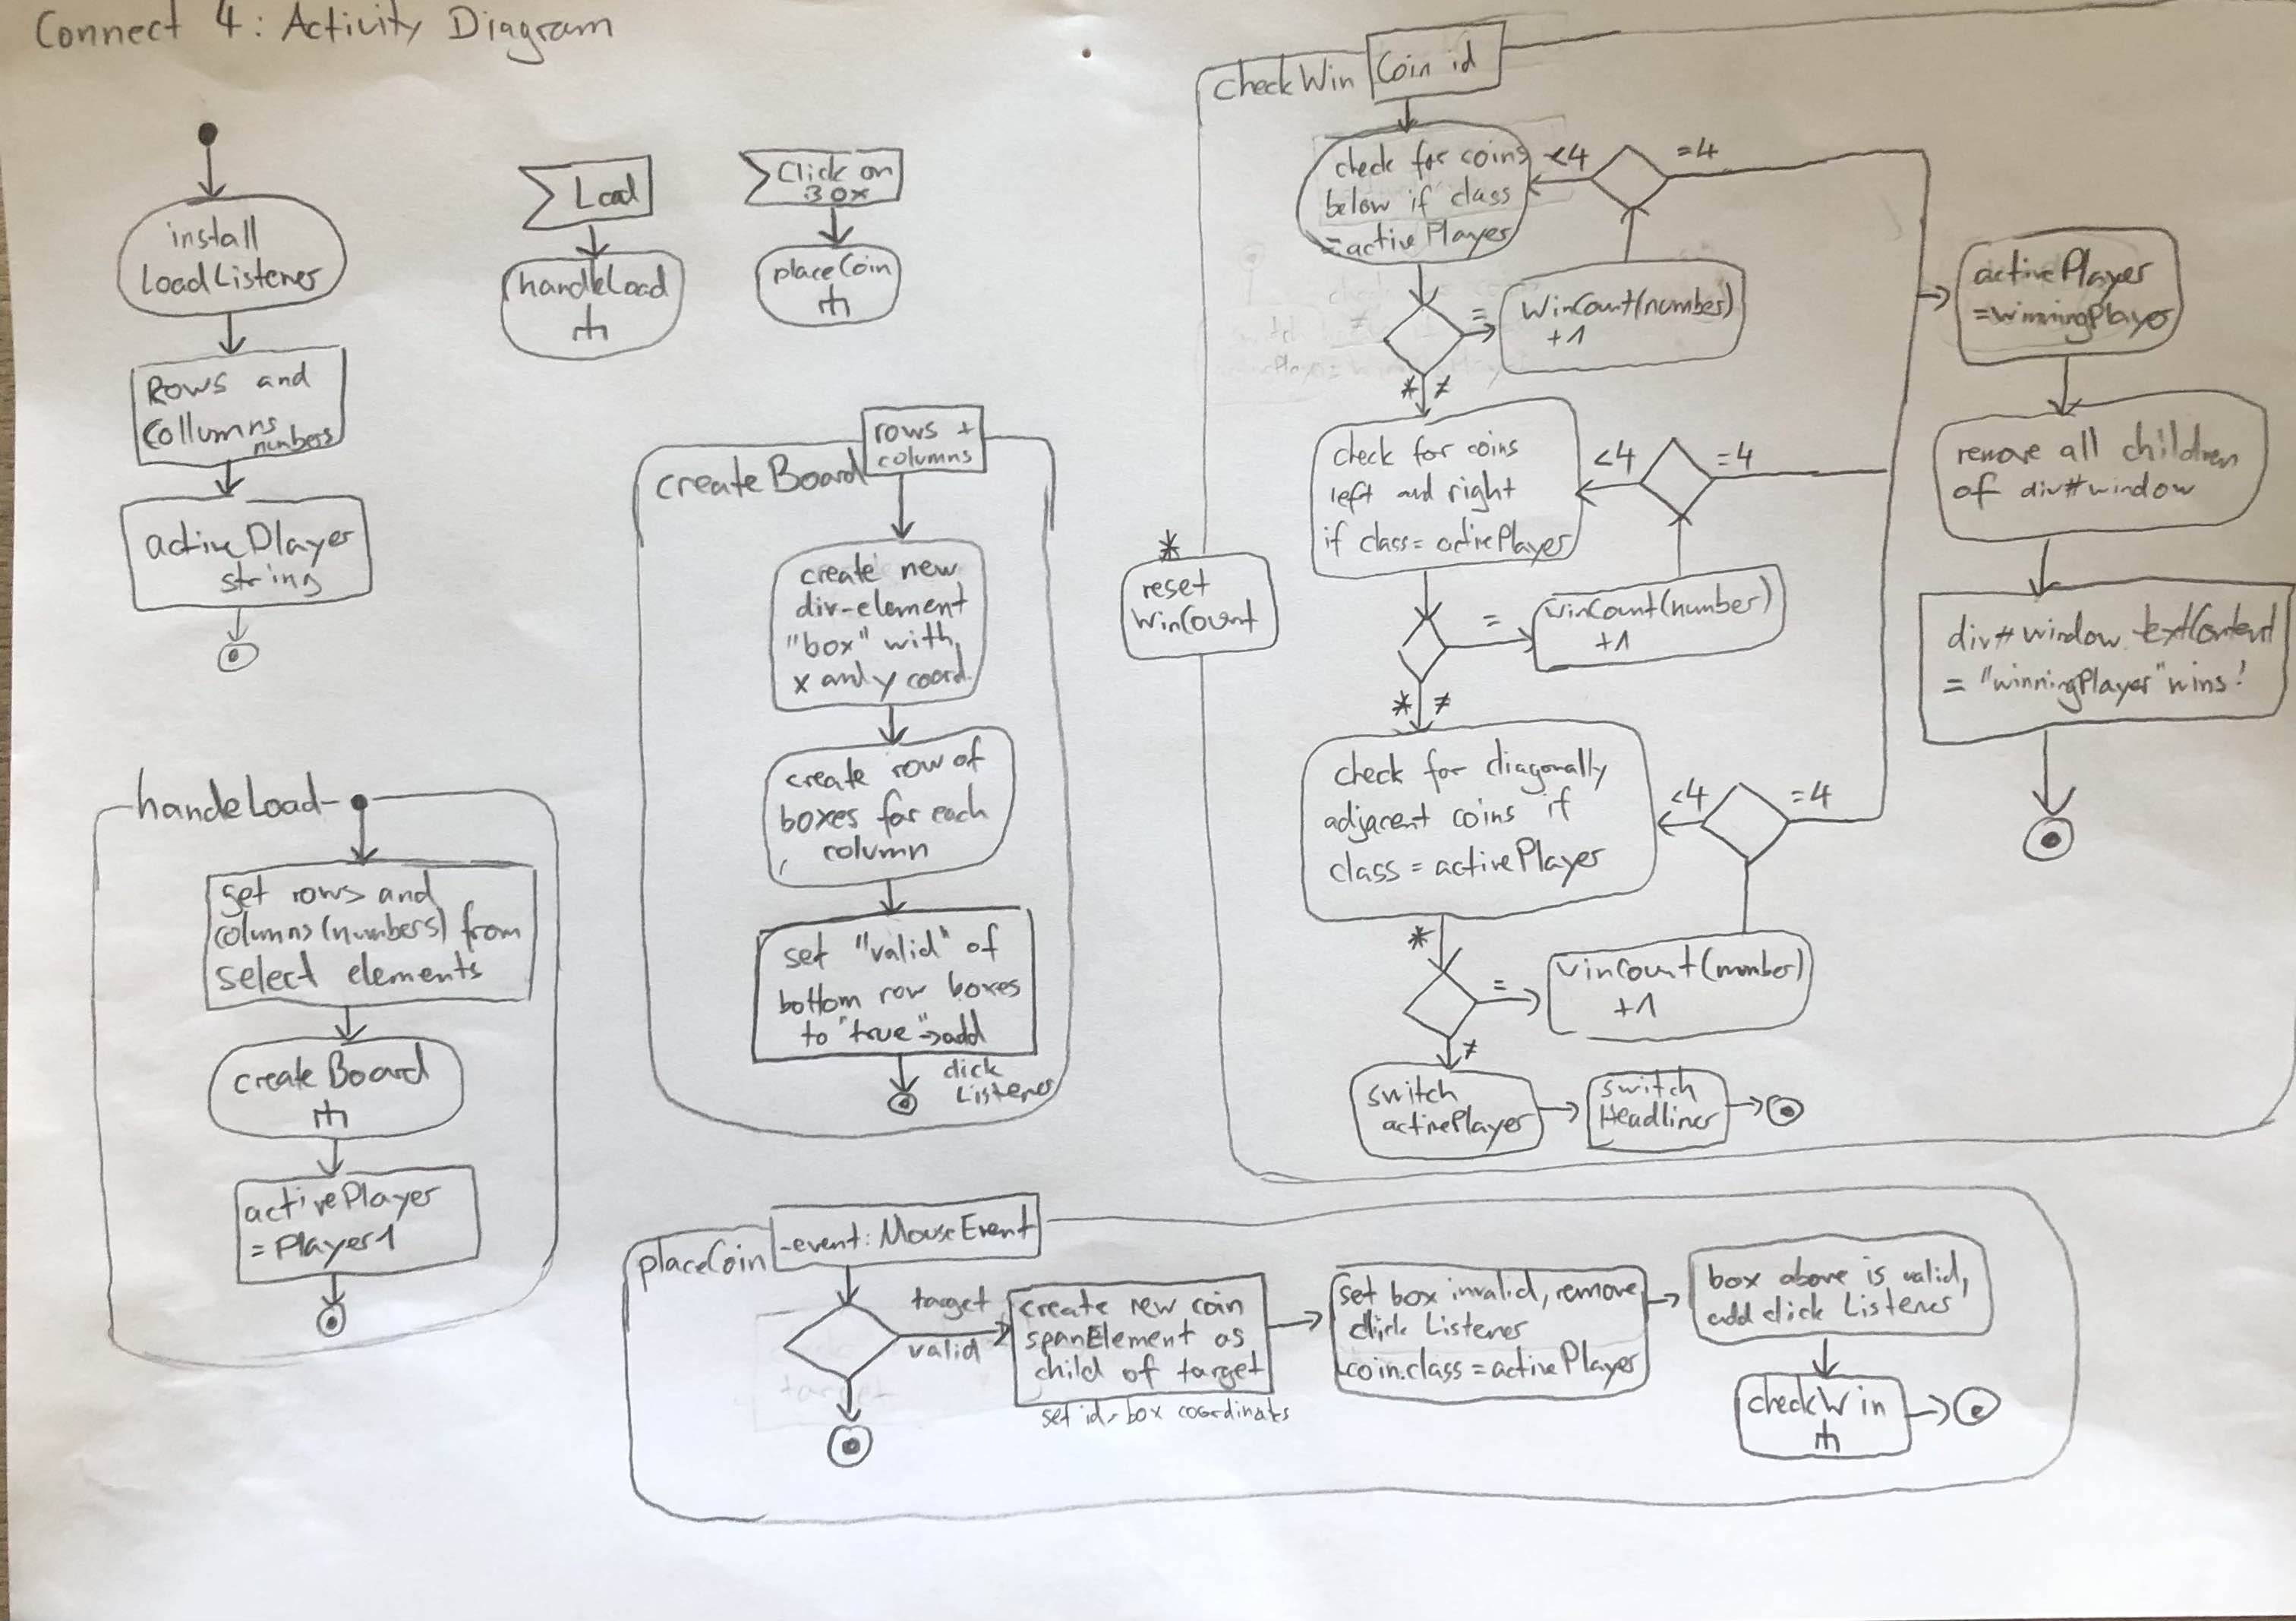 Connect 4: Activity Diagram
install
LoadListener
Rows and
Collumns
numbers
activePlayer
string
Load
handleLoad
Click on
Box
placeCoin
handeLoad
get rows and
columns (numbers) from
select elements
createBoard
activePlayer
= Player1
createBoard
rows +
columns
create new
div-element
"box" with
x and y coord.
create row of
boxes for each
column
set "valid" of
bottom row boxes
to "true" → add
click
Listener
checkWin
Coin id
check for coins
below if class
= activePlayer
<4
=4
=
WinCount(number)
+1
* ≠
check for coins
left and right
if class = activePlayer
<4
=4
=
winCount(number)
+1
* ≠
check for diagonally
adjacent coins if
class = activePlayer
<4
=4
*
=
winCount(number)
+1
≠
switch
activePlayer
switch
Headliner
*
reset
WinCount
activePlayer
= winningPlayer
remove all children
of div#window
div#window.textContent
= "winningPlayer" wins!
placeCoin
-event: MouseEvent
target
valid
create new coin
spanElement as
child of target
set id = box coordinates
set box invalid, remove
click Listener
coin.class = activePlayer
box above is valid,
add click Listener
checkWin